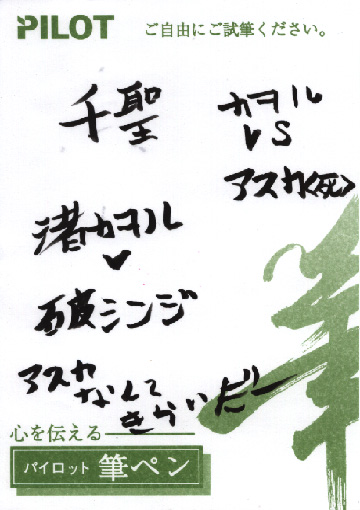 PILOT ご自由にご試筆ください。
千聖
カヲル
VS
アスカ<死>
渚カヲル
♥
破シンジ
アスカ
なんて
きらいだー
心を伝える
パイロット 筆ペン
筆